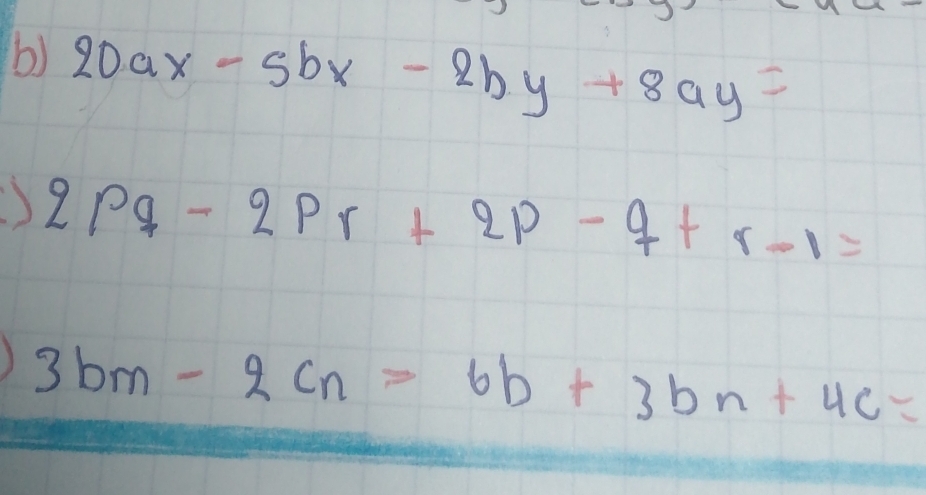 b) 20ax - 5bx - 2by + 8ay =
) 2pq - 2pr + 2p - q + r - 1 =
) 3bm - 2cn = 6b + 3bn + 4c =